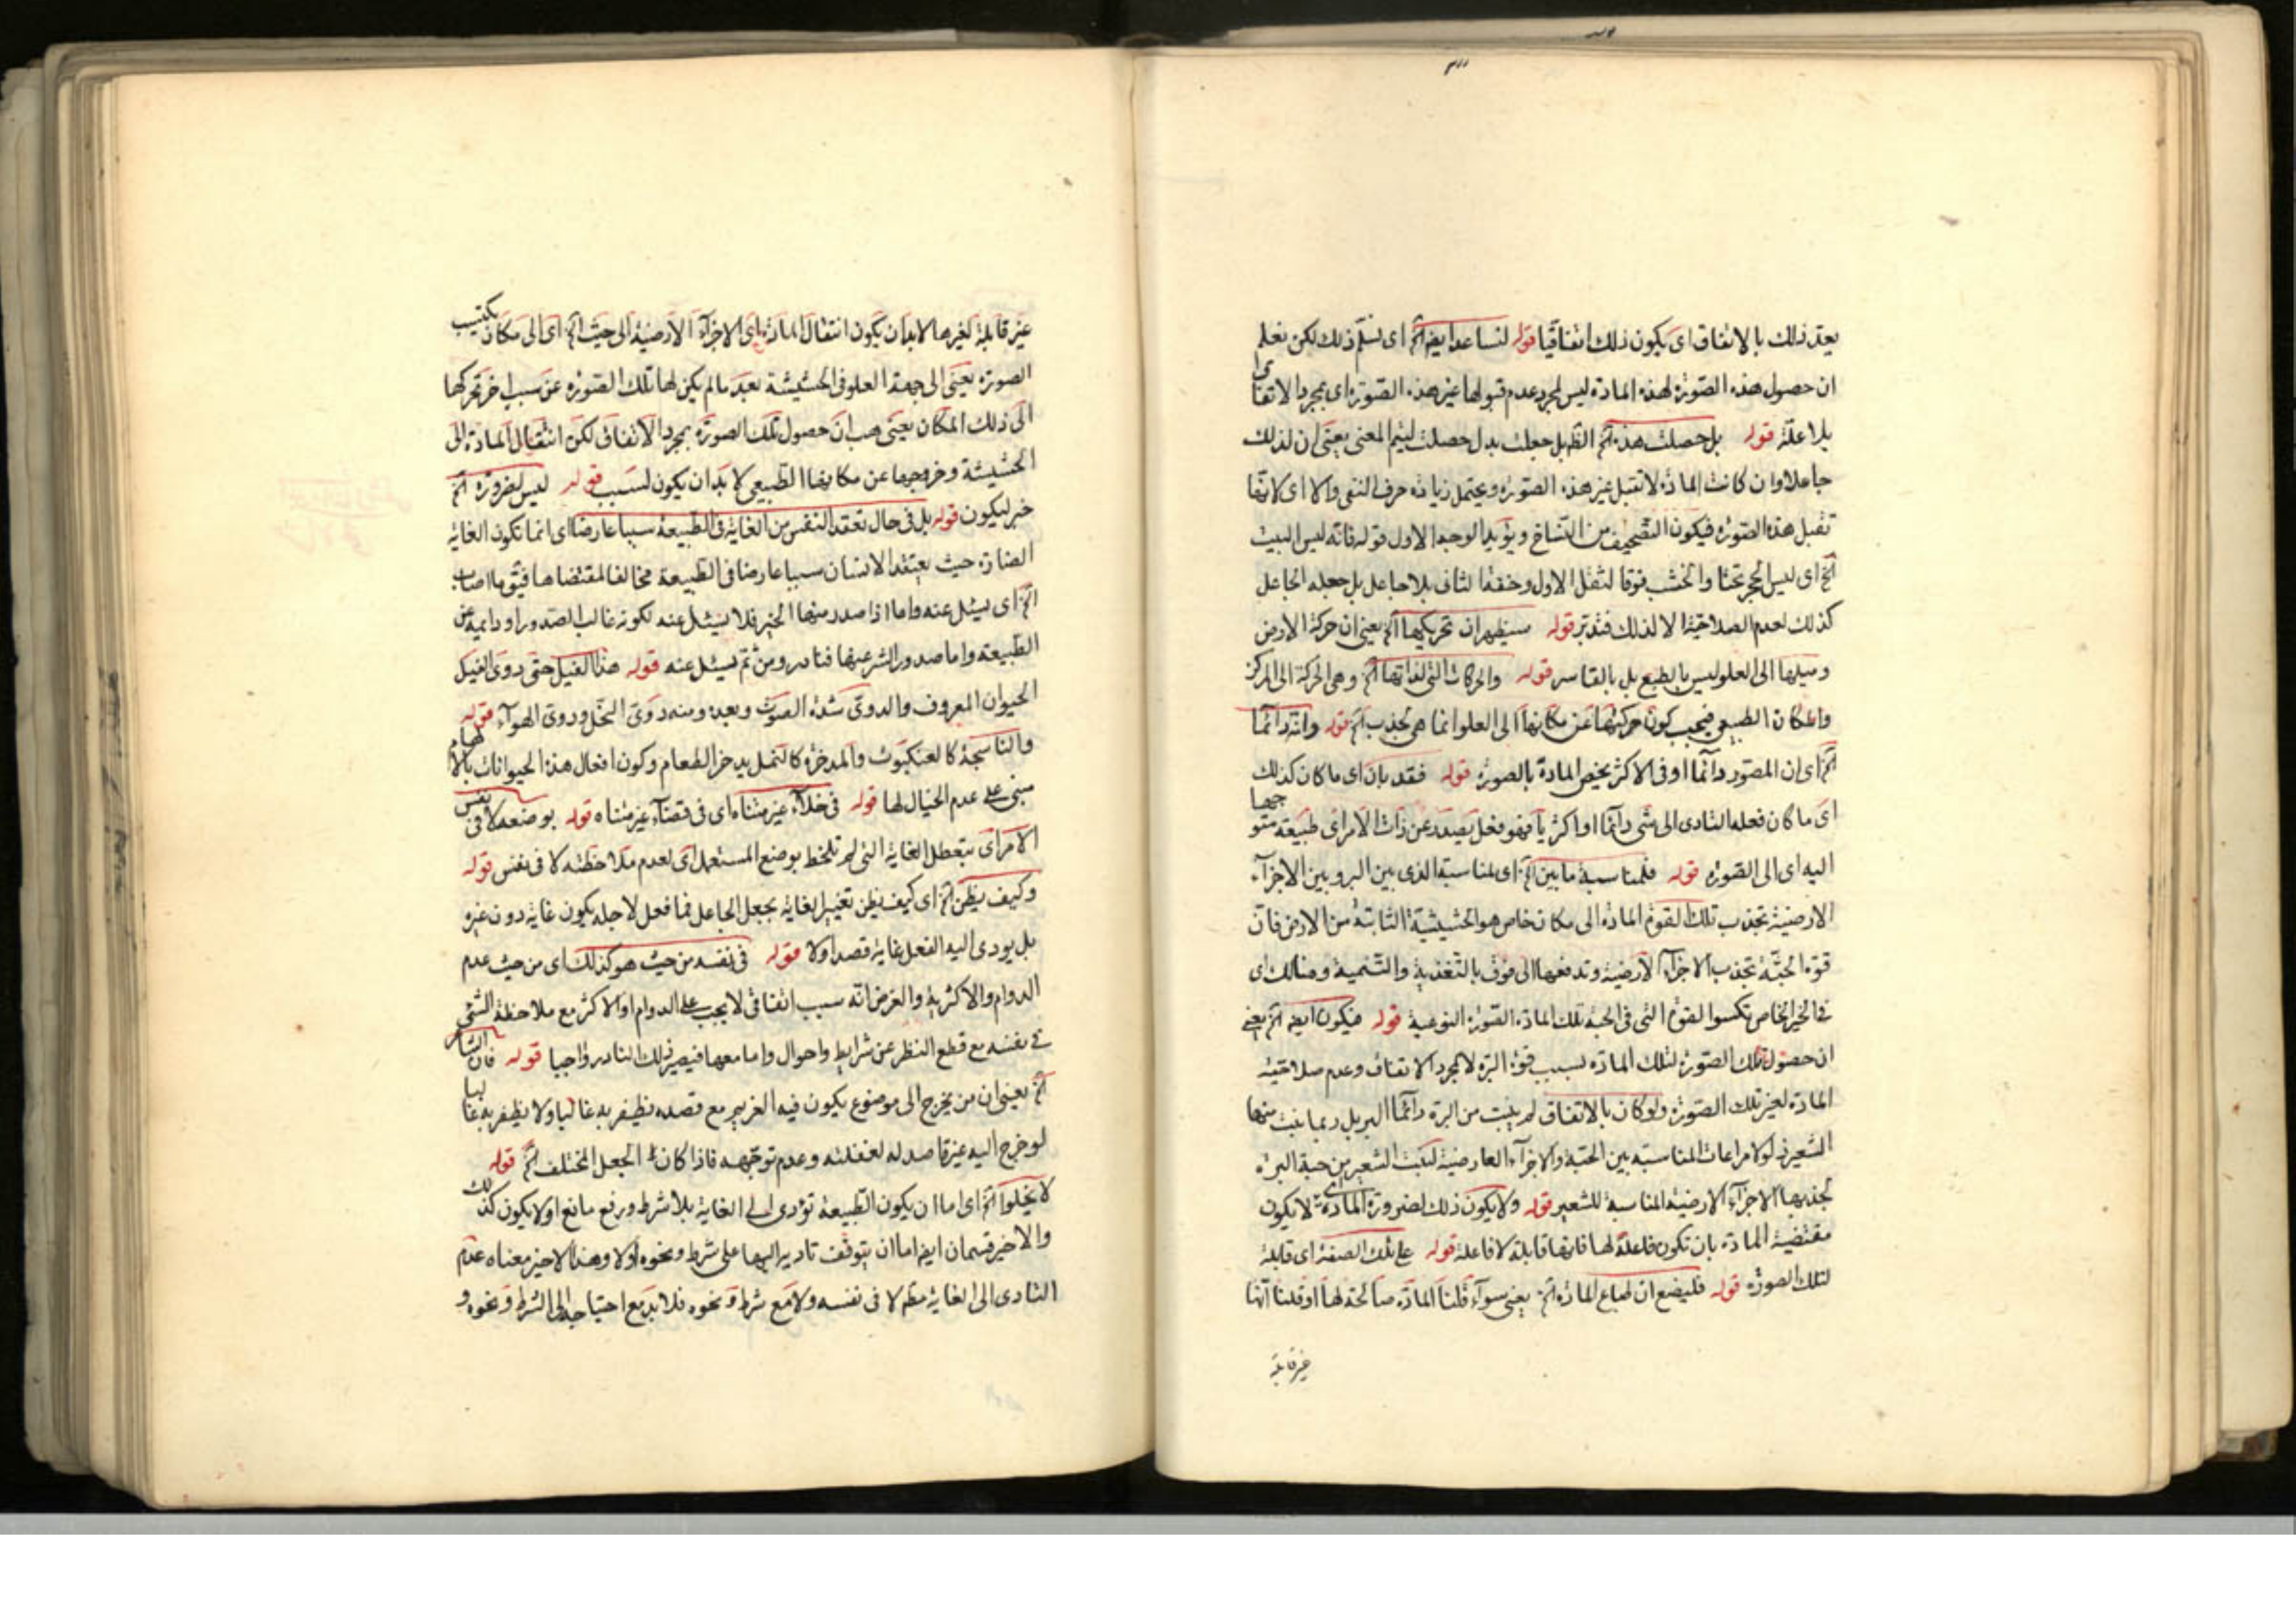 يعد ذلك بالاتفاق اى يكون ذلك اتفاقيا قوله لنساعد ايضا آلخ اى نسلّم ذلك لكن نعلم
ان حصول هذه الصّورة لهذه المادة ليس لمجرد عدم قبولها غير هذه الصّورة اى بمجرد الاتفاق
بلا علّة قوله بل حصلت هذه آلخ الظ بل جعلت بدل حصلت ليتم المعنى يعنى ان لذلك
جاعلا وان كانت المادة لا تقبل غير هذه الصّورة ويحتمل زيادة حرف النفى والا اى لانها
تقبل هذه الصورة فيكون التصحيف من النّساخ ويؤيد الوجه الاول قوله فانه ليس البيت
آلخ اى ليس الحجر تحتا والخشب فوقا لثقل الاول وخفة الثانى بلا جاعل بل جعله الجاعل
كذلك لعدم الصلاحية الا لذلك فتدبر قوله سيظهر ان تحريكها آلخ يعنى ان حركة الارض
وميلها الى العلو ليس بالطبع بل بالقاسر قوله والحركات التى لذاتها آلخ وهى الحركة الى المركز
والمكان الطبيعى فيجب كون حركتها عن مكانها الى العلو انما هى بجذب آلخ قوله وانه دائما
آلخ اى ان المصور دائما او فى الاكثر يخص المادة بالصورة قوله فقد بان اى ما كان كذلك
اى ما كان فعله التادى الى شى دائما او اكثريا فهو فعل يصدر عن ذات الامر اى طبيعة متوجها
اليه اى الى الصّورة قوله فلمناسبة ما بين آلخ اى لمناسبة الذى بين البر وبين الاجزآء
الارضية تجذب تلك القوة المادة الى مكان خاص هو الحشيشية الثابتة من الارض فان
قوة الحبّة تجذب الاجزآء الارضية وتدفعها الى فوق بالتغذية والتنمية وهنالك اى
فى الحيز الخاص تكسوا القوة التى فى الحبة تلك المادة الصّورة النوعية قوله فيكون ايضا آلخ يعنى
ان حصول تلك الصّورة لتلك المادة بسبب قوة البرة لا بمجرد الاتفاق وعدم صلاحية
المادة لغير تلك الصّورة ولو كان بالاتفاق لم ينبت من البرة دائما البر بل ربما ينبت منها
الشعير اذ لولا مراعات المناسبة بين الحبة والاجزآء العارضية لنبت الشعير من حبة البرة
بجذبها الاجزآء الارضية المناسبة للشعير قوله ولا يكون ذلك لضرورة المادة اى لا يكون
مقتضية المادة بان تكون فاعلة لها فانها قابلة لا فاعلة قوله على تلك الصفة اى قابلة
لتلك الصورة قوله فليضع ان طباع المادة آلخ يعنى سوآء قلنا المادة صالحة لها او قلنا انها
غير قابلة
غير قابلة لغيرها لا بد ان يكون انتقال المادة اى الاجزآء الارضية الى حيث آلخ اى الى مكان تكتسب
الصورة يعنى الى جهة العلو فى الحشيشة بعد ما لم يكن لها تلك الصّورة عن سبب اخر تحركها
الى ذلك المكان يعنى هب ان حصول تلك الصورة بمجرد الاتفاق لكن انتقال المادة الى
الحشيشة وخروجها عن مكانها الطّبيعى لا بد ان يكون لسبب قوله ليس لضرورة آلخ
خبر ليكون قوله بل فى حال تعقد النفس من الغاية فى الطّبيعة سببا عارضا اى انما تكون الغاية
الضارة حيث يعتقد الانسان سببا عارضا فى الطبيعة مخالفا لمقتضاها فيق ما اصاب
آلخ اى يسئل عنه واما اذا صدر منها الخير فلا يسئل عنه لكونه غالب الصّدور او دايمية من
الطّبيعة واما صدور الشر عنها فنادر ومن ثم يسئل عنه قوله هذا الفيل حتى دوى الفيل
الحيوان المعروف والدوى شدة الصوت وبعده ومنه دوى النحل ودوى الهوآء قوله
والناسجة كالعنكبوت والمدخرة كالنمل يدخر الطعام وكون افعال هذه الحيوانات بالالهام
مبنى على عدم الخيال لها قوله فى خلآء غير متناه اى فى فضآء غير متناه قوله بوضعه لا فى نفس
الامر اى بتعطل الغاية التى لم تلحظ بوضع المستعمل اى لعدم ملاحظته لا فى نفس قوله
وكيف يظن آلخ اى كيف يظن تغيير الغاية بجعل الجاعل فما فعل لاجله يكون غاية دون غيره
بل يودى اليه الفعل غاية قصد اولا قوله فى نفسه من حيث هو كذلك اى من حيث عدم
الدوام والاكثرية والغرض انه سبب اتفاقى لا يجب على الدوام او الاكثر مع ملاحظة الشّى
فى نفسه مع قطع النظر عن شرايط واحوال واما معها فيصير ذلك النادر واجبا قوله فان الشار
آلخ يعنى ان من يخرج الى موضوع يكون فيه الغريم مع قصده يظفر به غالبا ولا يظفر به غالبا
لو خرج اليه غير قاصد له لغفلته وعدم توجهه فاذا كان الجعل المختلف آلخ قوله
لا يخلوا آلخ اى اما ان يكون الطّبيعة تؤدى الى الغاية بلا شرط ورفع مانع او لا يكون كذلك
والاخير قسمان ايضا اما ان يتوقف تاديها اليها على شرط ونحوه اولا وهذا الاخير معناه عدم
التادى الى الغاية مطلقا لا فى نفسه ولا مع شرط ونحوه فلا بد مع احتياجها الى الشرط ونحوه و